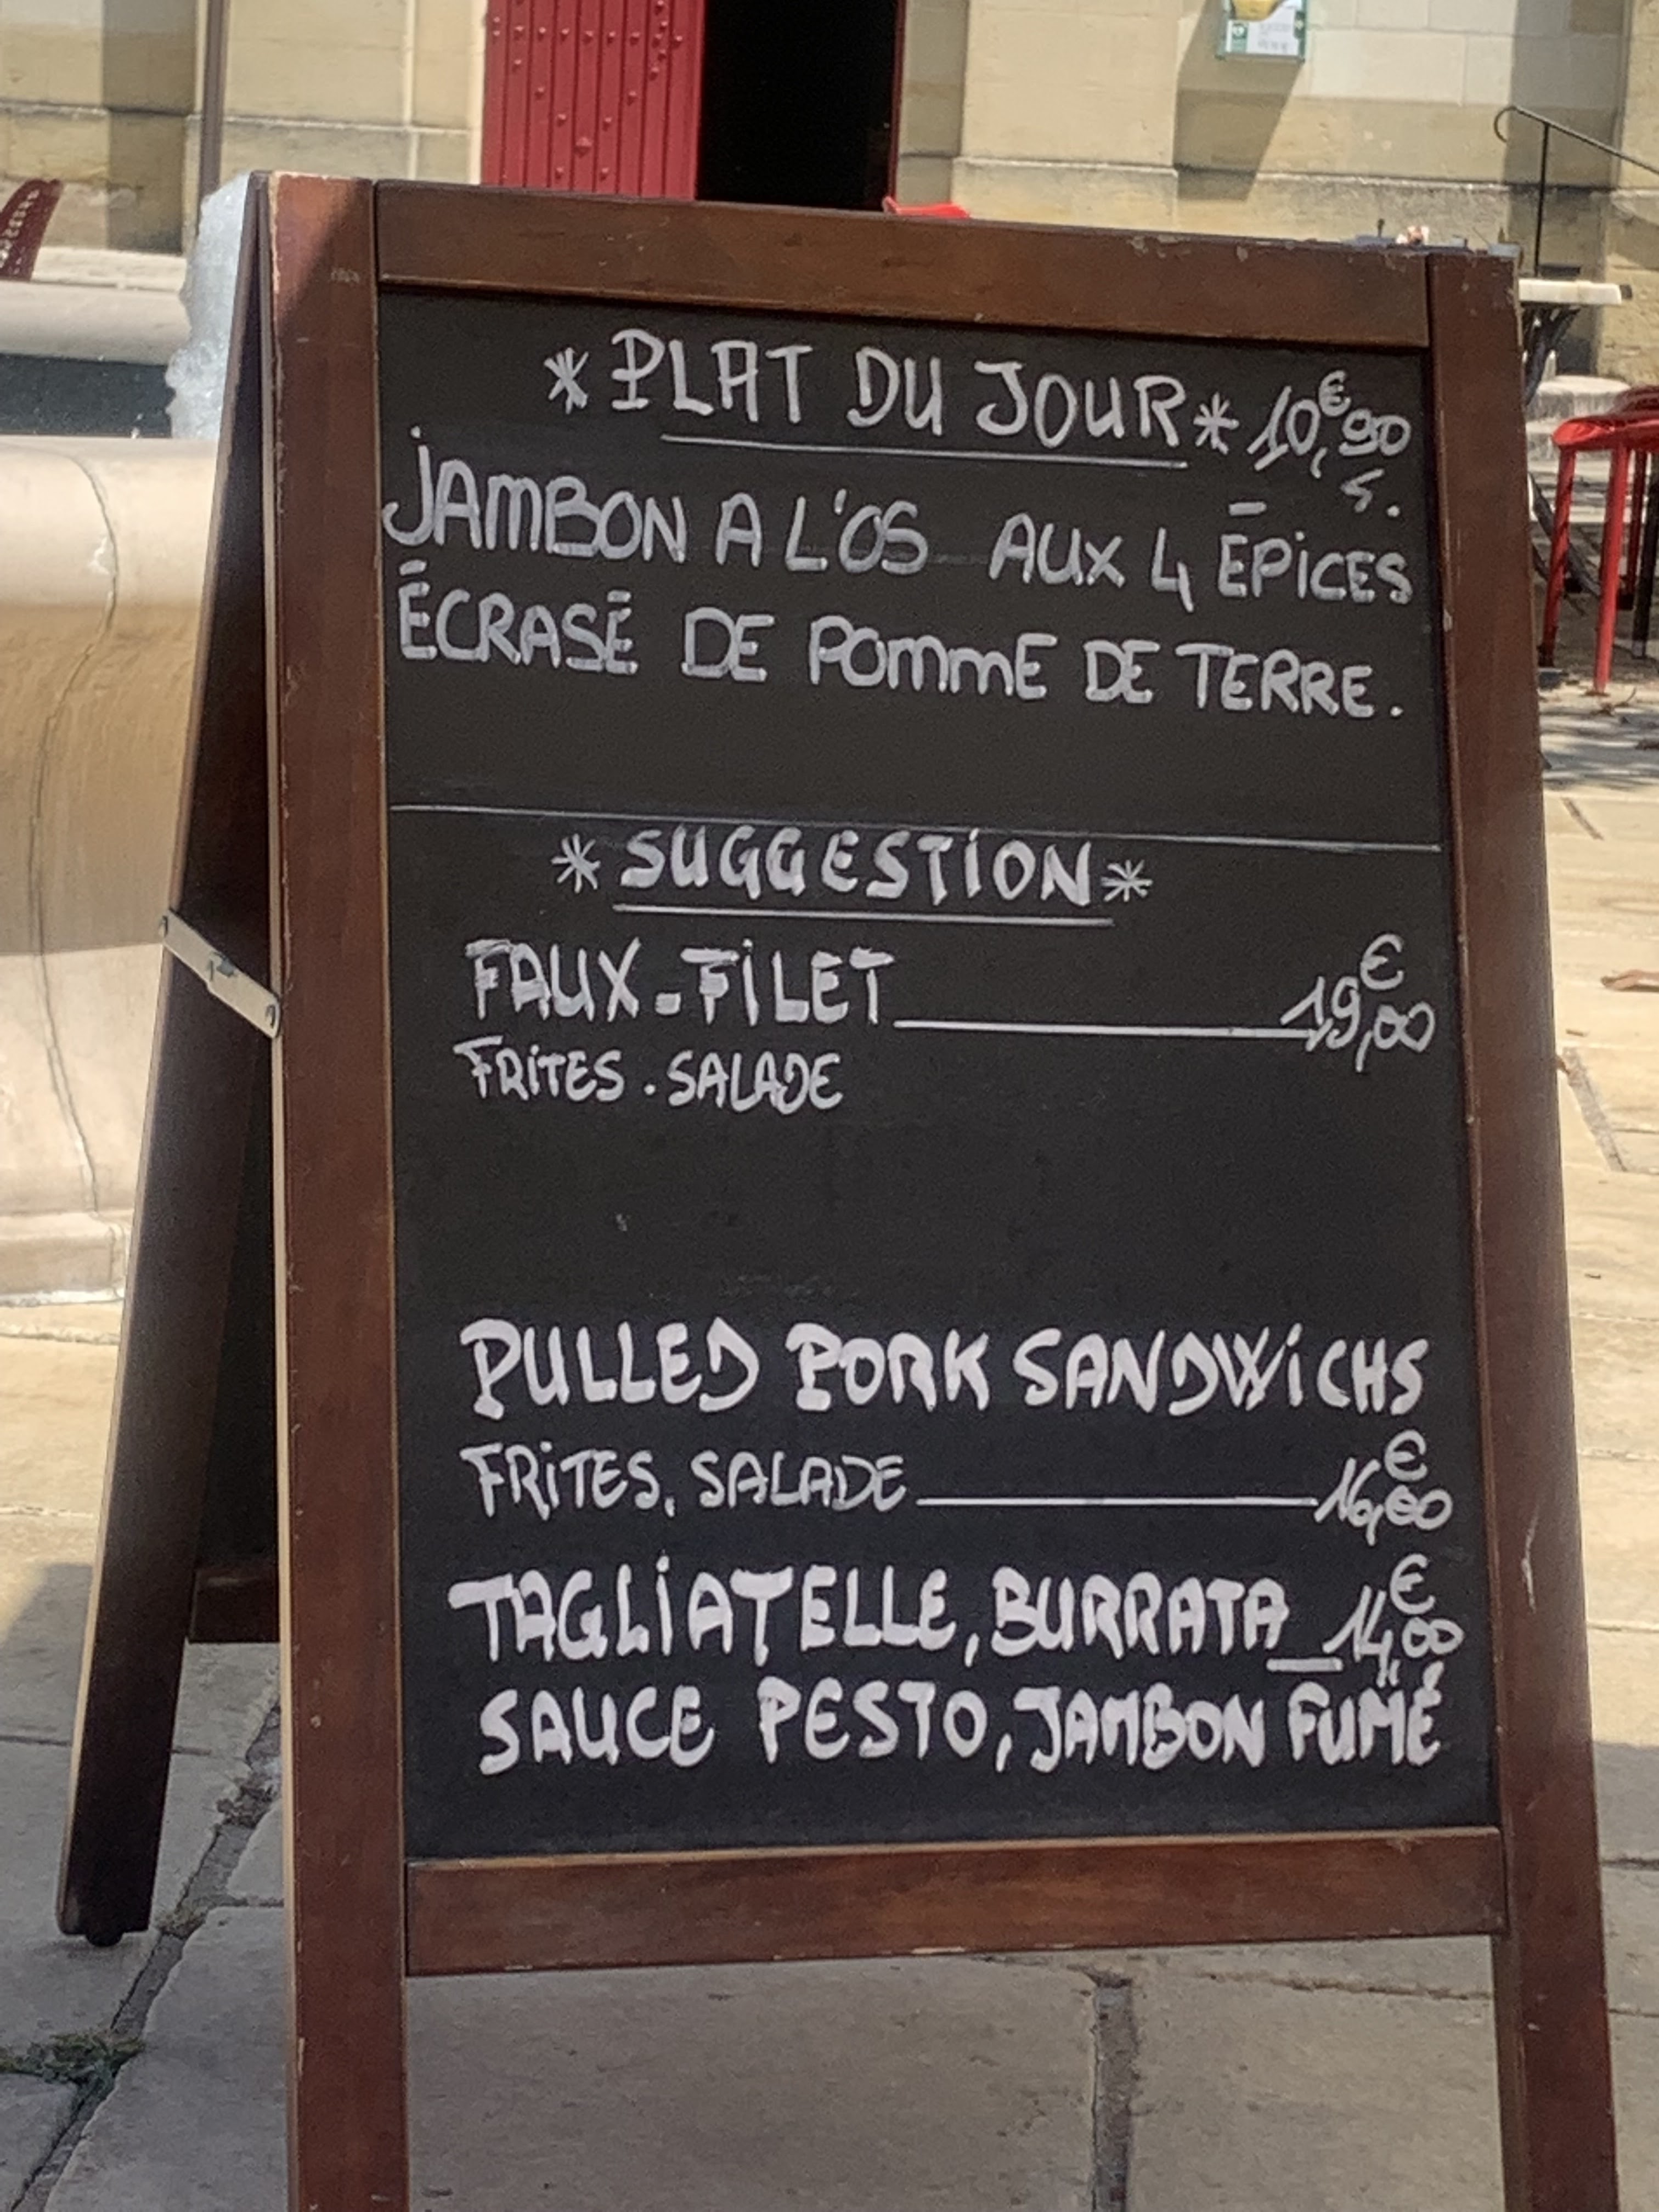 * PLAT DU JOUR * 10,€90
JAMBON A L'OS AUX 4 ÉPICES
ÉCRASÉ DE POMME DE TERRE.
* SUGGESTION *
FAUX-FILET 19,€00
FRITES. SALADE
PULLED PORK SANDWICHS
FRITES, SALADE 16,€00
TAGLIATELLE, BURRATA 14,€00
SAUCE PESTO, JAMBON FUMÉ